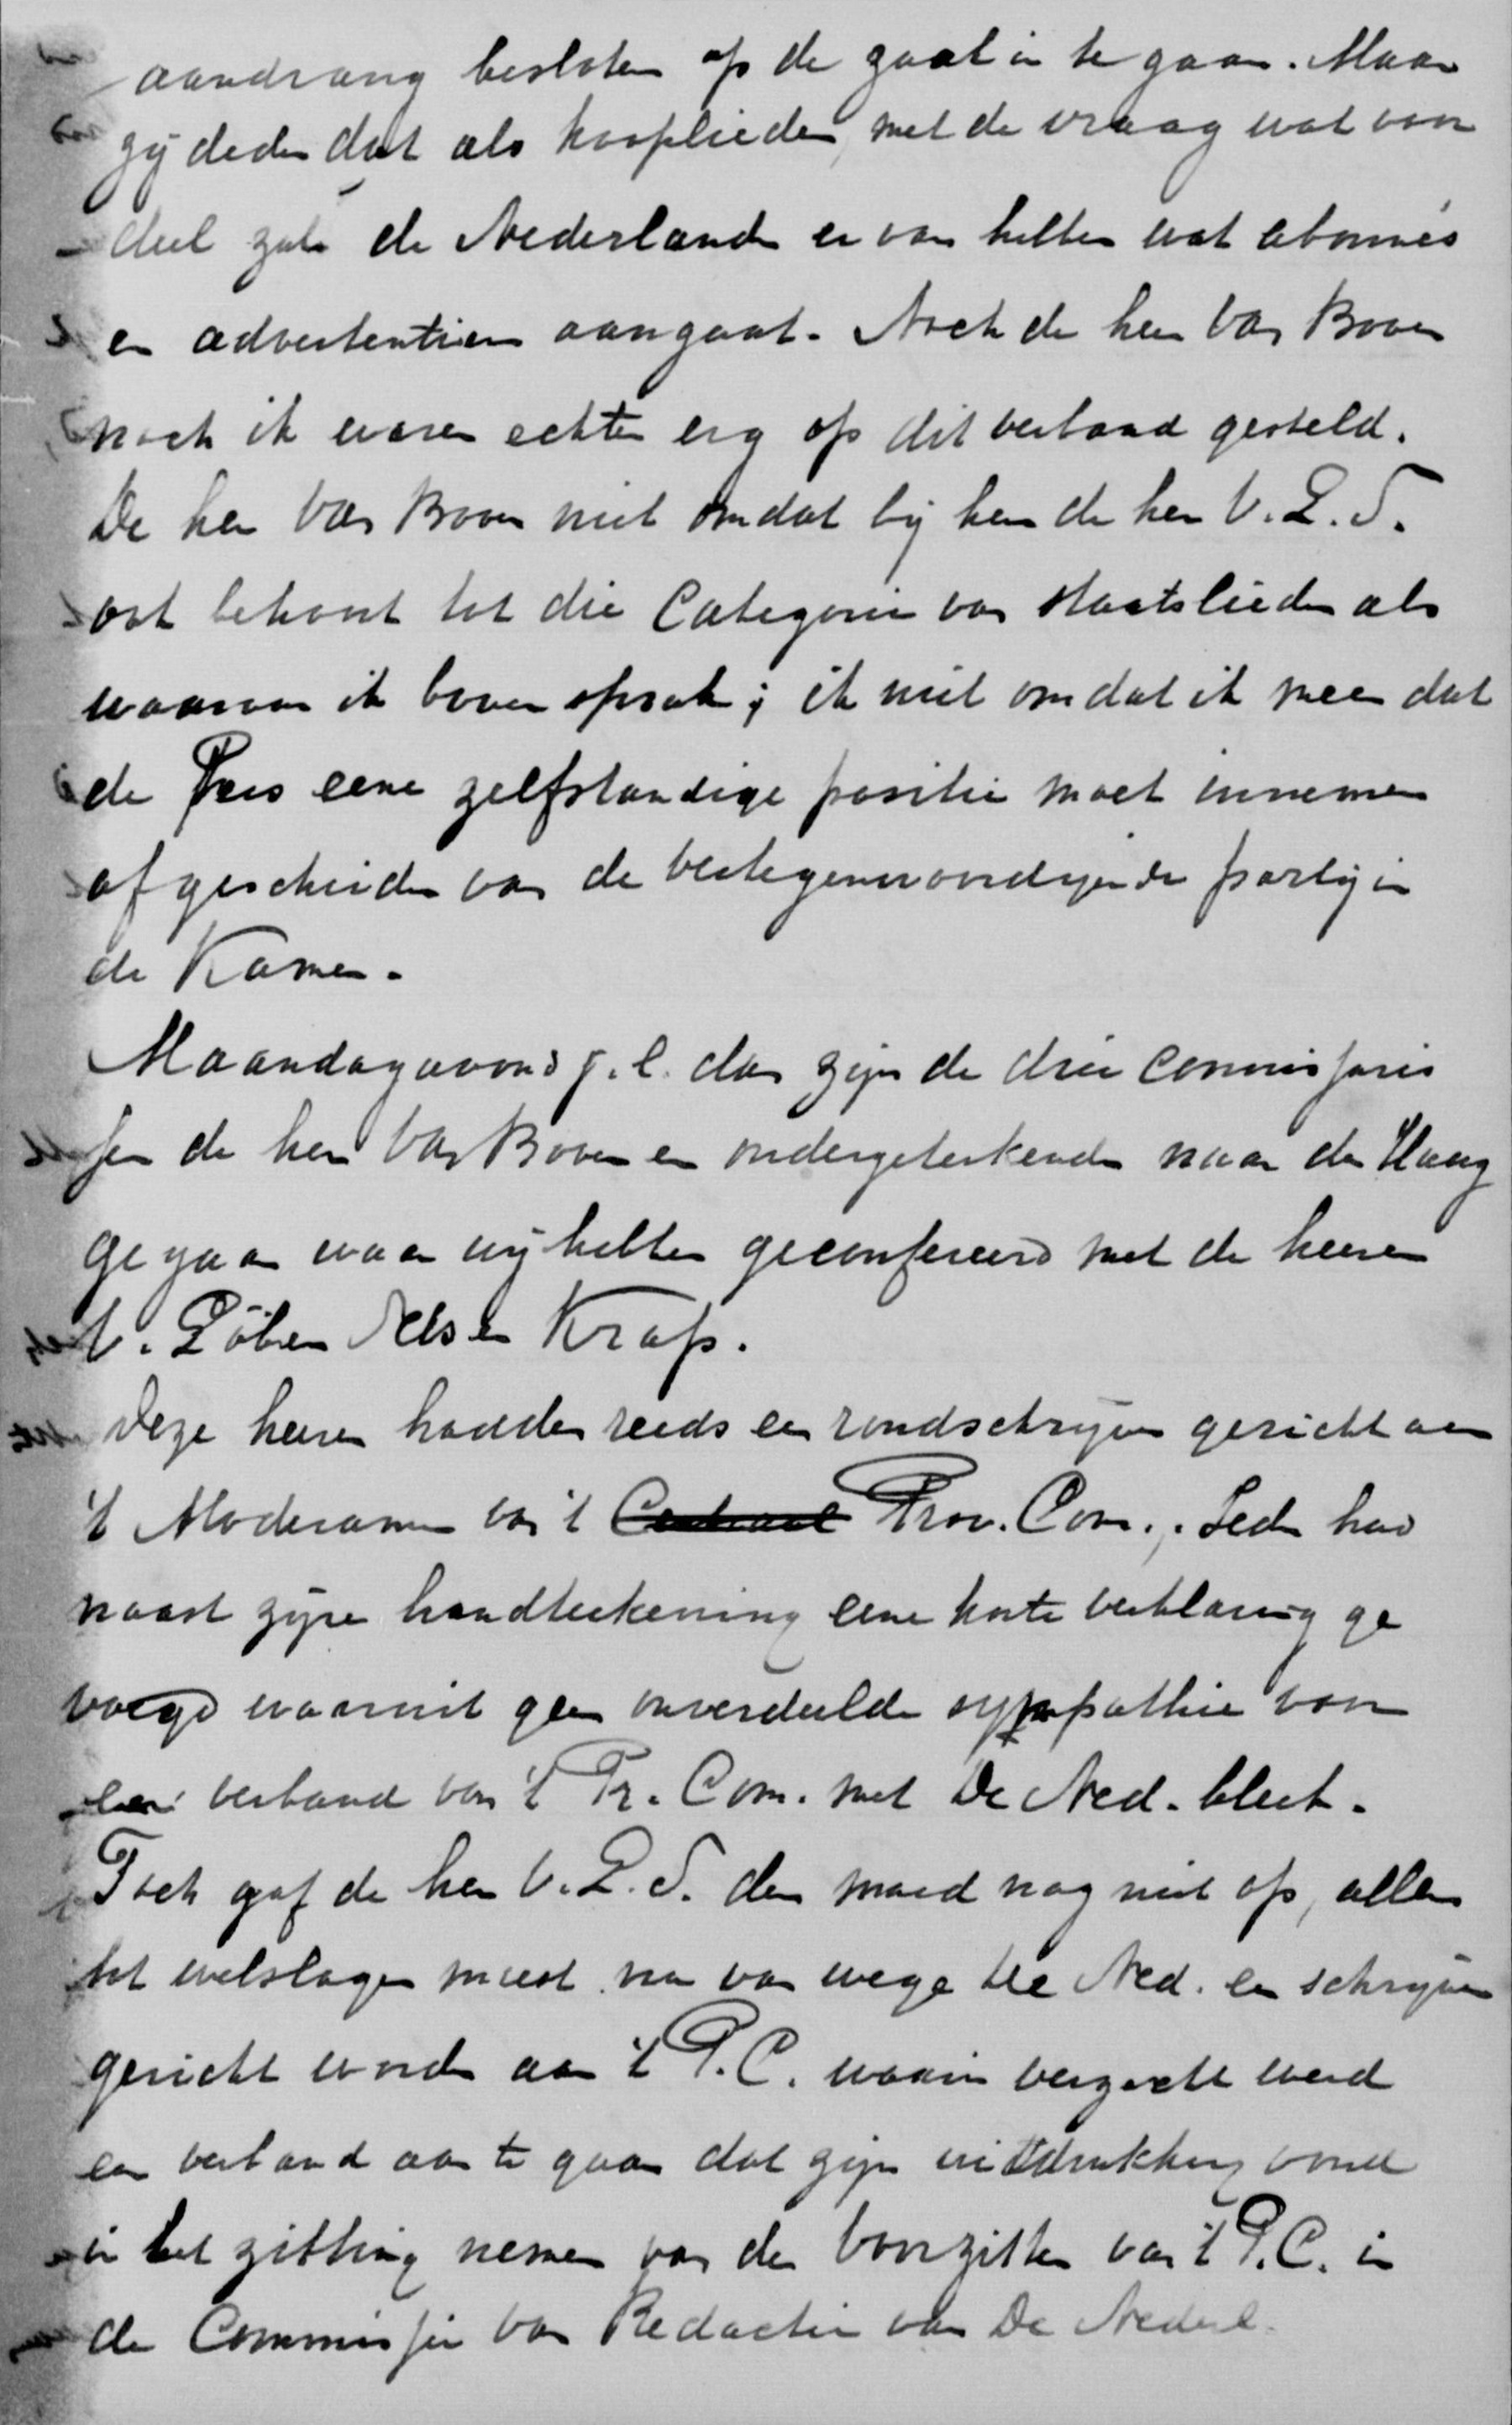 aandrang besloten op de zaak in te gaan. Maar
zij deden dat als kooplieden, met de vraag wat voor
deel zal de Nederlander er van hebben wat abonnés
en advertentiën aangaat. Noch de heer Van Boven
noch ik waren echter erg op dit verband gesteld.
De heer Van Boven niet omdat bij hem de heer V. L. S.
ook behoort tot die Categorie van staatslieden als
waarvan ik boven sprak; ik niet omdat ik meen dat
de Pers eene zelfstandige positie moet innemen
afgescheiden van de vertegenwoordigende partij in
de Kamer.
Maandagavond j.l. dan zijn de drie Commissaris
sen de heer Van Boven en ondergeteekende naar den Haag
gegaan waar wij hebben geconfereerd met de heeren
V. Löben Sels en Krap.
Deze heeren hadden reeds een rondschrijven gericht aan
't Moderamen van 't Centraal Prov. Com., Ieder had
naast zijne handteekening eene korte verklaring ge
voegd waaruit geen onverdeelde sympathie voor
een verband van 't Pr. Com. met De Ned. bleek.
Toch gaf de heer V. L. S. den moed nog niet op, alleen
tot welslagen moest nu van wege De Ned. een schrijven
gericht worden aan 't P.C. waarin verzocht werd
een verband aan te gaan dat zijn uitdrukking vond
in het zitting nemen van den Voorzitter van 't P.C. in
de Commissie van Redactie van De Nederl.